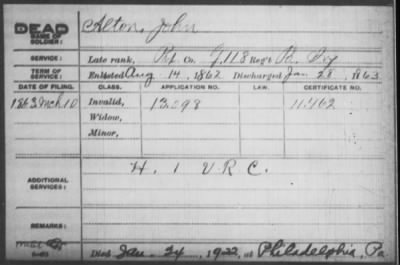 DEAD
NAME OF SOLDIER:
Alton, John
SERVICE: Late rank, Pvt Co. G, 118 Reg't Pa. Inf
TERM OF SERVICE: Enlisted Aug 14, 1862 Discharged Jan 28, 1863
DATE OF FILING. CLASS. APPLICATION NO. LAW. CERTIFICATE NO.
1863 Mch 10 Invalid, 13.098 11.462
Widow,
Minor,
ADDITIONAL SERVICES: H. 1 V.R.C.
REMARKS:
Died Jan. 24, 1922, at Philadelphia, Pa